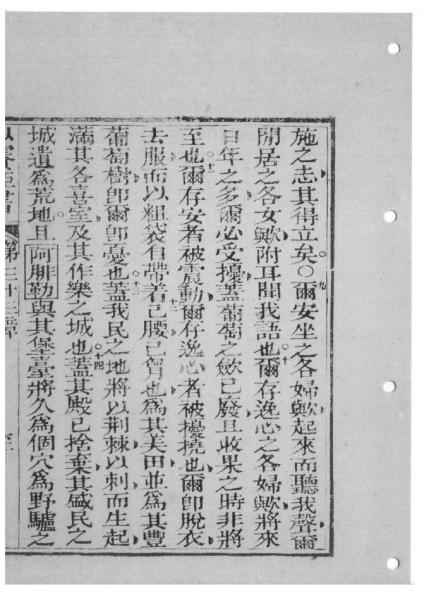 施之志其得立矣○九爾安坐之各婦歟起來而聽我聲爾
閒居之各女歟附耳聞我語也十爾存逸心之各婦歟將來
日年之多爾必受擾蓋葡萄之斂已廢且收果之時非將
至也十一爾存安者被震動爾存逸心者被擾撓也爾即脫衣
去服而以粗袋自帶着己腰已十二胷也為其美田並為其豐
葡萄樹即爾即憂也十三蓋我民之地將以荆棘以刺而生起
滿其各喜室及其作樂之城也十四蓋其殿已捨棄其盛民之
城遺為荒地且阿腓勒與其堡臺將久為個穴為野驢之
以賽亞書 第三十二章